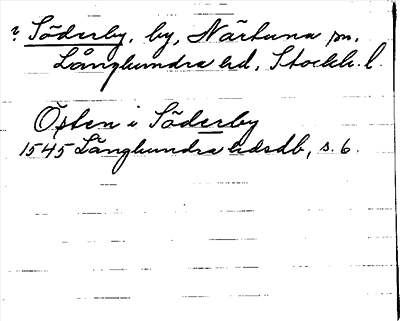 ? Söderby, by, Närtuna sn,
Långhundra hd, Stockh. l.
Östen i Söderby
1545 Långhundra hdsdb, s. 6.